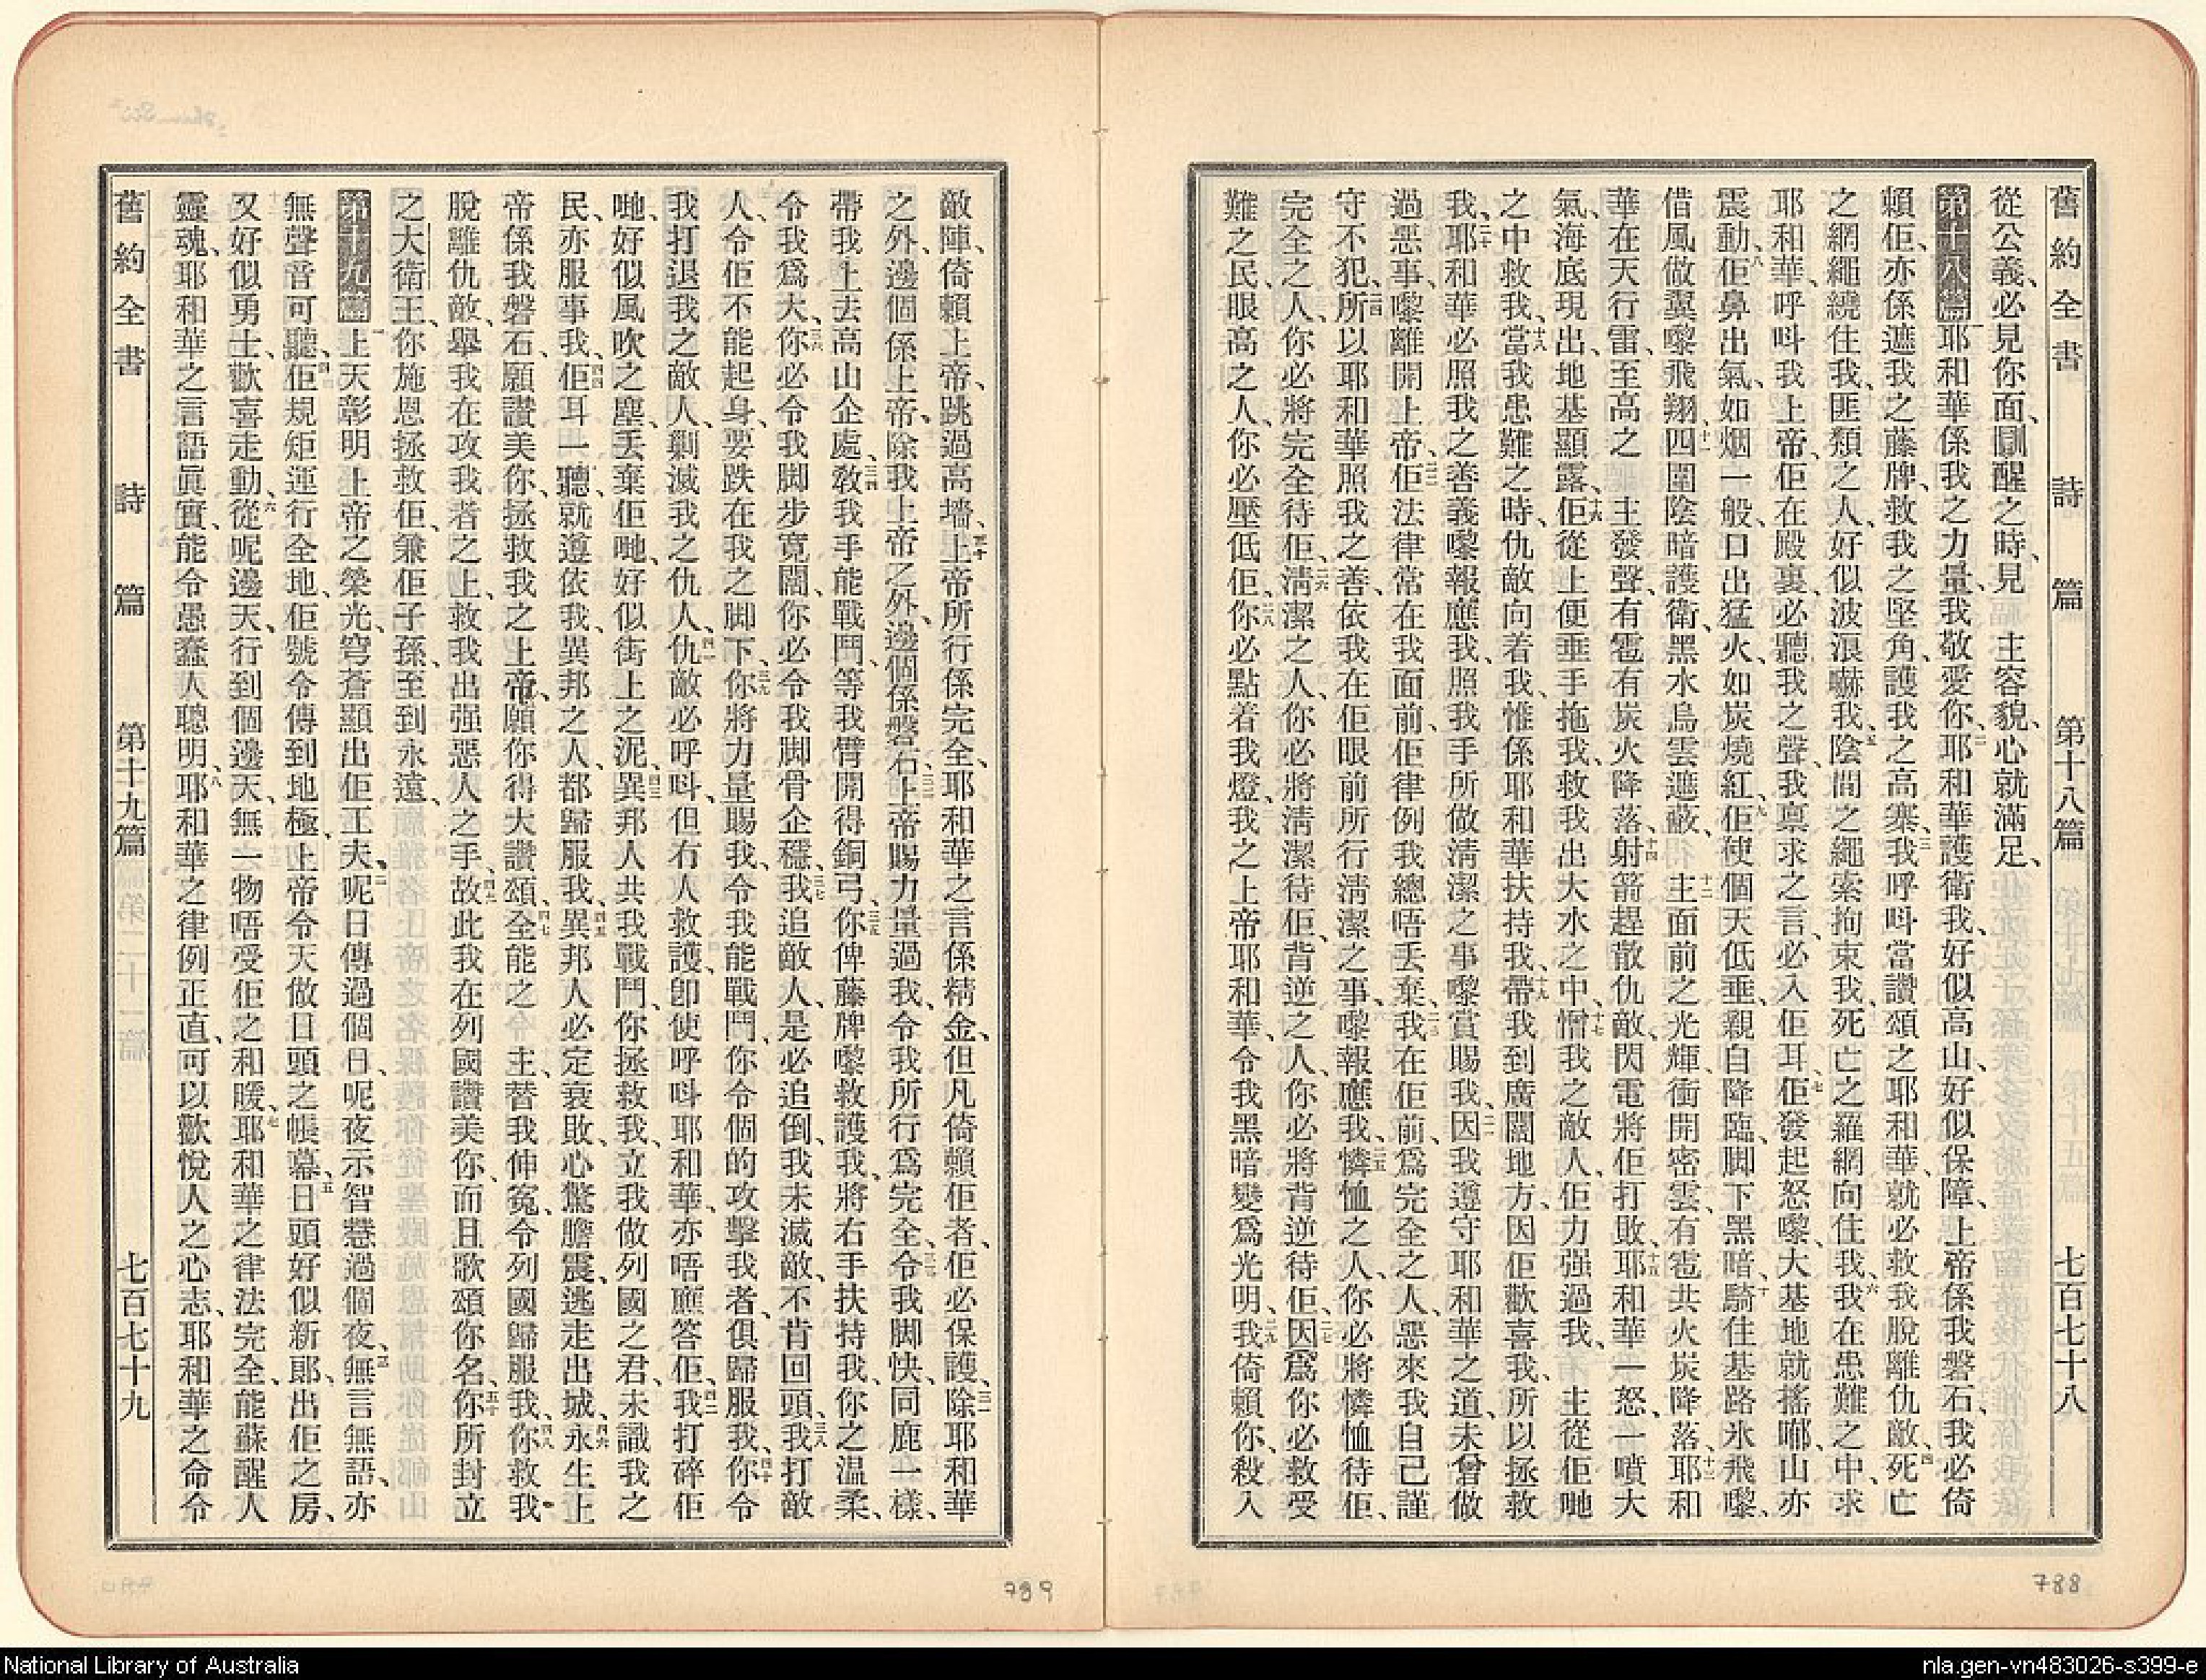 舊約全書 詩篇 第十八篇 七百七十八
從公義、必見你面、瞓醒之時、見 主容貌、心就滿足、
第十八篇 一耶和華係我之力量、我敬愛你、二耶和華護衛我、好似高山、好似保障、上帝係我磐石、我必倚
賴佢、亦係遮我之藤牌、救我之堅角、護我之高寨、三我呼呌當讚頌之耶和華、就必救我脫離仇敵、四死亡
之網繩繞住我、匪類之人、好似波浪嚇我、五陰間之繩索拘束我、死亡之羅網向住我、六我在患難之中、求
耶和華、呼呌我上帝、佢在殿裏、必聽我之聲、我稟求之言、必入佢耳、七佢發起怒嚟、大基地就搖郁、山亦
震動、八佢鼻出氣、如烟一般、口出猛火、火如炭燒紅、九佢使個天低垂、親自降臨、脚下黑暗、十騎住基路氷飛嚟、
借風做翼嚟飛翔、十一四圍陰暗護衛、黑水烏雲遮蔽、十二主面前之光輝、衝開密雲、有雹共火炭降落、十三耶和
華在天行雷、至高之 主發聲、有雹有炭火降落、十四射箭趕散仇敵、閃電將佢打敗、十五耶和華一怒、一噴大
氣、海底現出、地基顯露、十六佢從上便垂手拖我、救我出大水之中、十七憎我之敵人、佢力强過我、 主從佢哋
之中救我、十八當我患難之時、仇敵向着我、惟係耶和華扶持我、十九帶我到廣闊地方、因佢歡喜我、所以拯救
我、二十耶和華必照我之善義嚟報應我、照我手所做淸潔之事嚟賞賜我、二一因我遵守耶和華之道、未曾做
過惡事、嚟離開上帝、二二佢法律常在我面前、佢律例我總唔丟棄、二三我在佢前、爲完全之人、惡來我自己謹
守不犯、二四所以耶和華照我之善、依我在佢眼前所行淸潔之事、嚟報應我、二五憐恤之人、你必將憐恤待佢、
完全之人、你必將完全待佢、二六淸潔之人、你必將淸潔待佢、背逆之人、你必將背逆待佢、二七因爲你必救受
難之民、眼高之人、你必壓低佢、二八你必點着我燈、我之上帝耶和華、令我黑暗變爲光明、二九我倚賴你、殺入
敵陣、倚賴上帝、跳過高墻、三十上帝所行係完全、耶和華之言係精金、但凡倚賴佢者、佢必保護、三一除耶和華
之外、邊個係上帝、除我上帝之外、邊個係磐石、三二上帝賜力量過我、令我所行爲完全、三三令我脚快同鹿一樣、
帶我上去高山企處、三四敎我手能戰鬥、等我臂開得銅弓、三五你俾藤牌嚟救護我、將右手扶持我、你之温柔、
令我爲大、三六你必令我脚步寬闊、你必令我脚骨企穩、三七我追敵人、是必追倒、我未滅敵、不肯回頭、三八我打敵
人、令佢不能起身、要跌在我之脚下、三九你將力量賜我、令我能戰鬥、你令個的攻擊我者、俱歸服我、四十你令
我打退我之敵人、剿滅我之仇人、四一仇敵必呼呌、但冇人救護、卽使呼呌耶和華、亦唔應答佢、四二我打碎佢
哋、好似風吹之塵、丢棄佢哋、好似街上之泥、四三異邦人共我戰鬥、你拯救我、立我做列國之君、未識我之
民、亦服事我、四四佢耳一聽、就遵依我、異邦之人、都歸服我、四五異邦人必定衰敗、心驚膽震、逃走出城、四六永生上
帝係我磐石、願讚美你、拯救我之上帝、願你得大讚頌、四七全能之 主替我伸寃、令列國歸服我、四八你救我
脫離仇敵、舉我在攻我者之上、救我出强惡人之手、四九故此我在列國讚美你、而且歌頌你名、五十你所封立
之大衛王、你施恩拯救佢、兼佢子孫、至到永遠、
第十九篇 一上天彰明上帝之榮光、穹蒼顯出佢工夫、二呢日傳過個日、呢夜示智慧過個夜、三無言無語、亦
無聲音可聽、四佢規矩運行全地、佢號令傳到地極、上帝令天做日頭之帳幕、五日頭好似新郞、出佢之房、
又好似勇士、歡喜走動、六從呢邊天、行到個邊天、無一物唔受佢之和暖、七耶和華之律法完全、能蘇醒人
靈魂、耶和華之言語眞實、能令愚蠢人聰明、八耶和華之律例正直、可以歡悅人之心志、耶和華之命令
舊約全書 詩篇 第十九篇 七百七十九
789
788
National Library of Australia
nla.gen-vn483026-s399-e